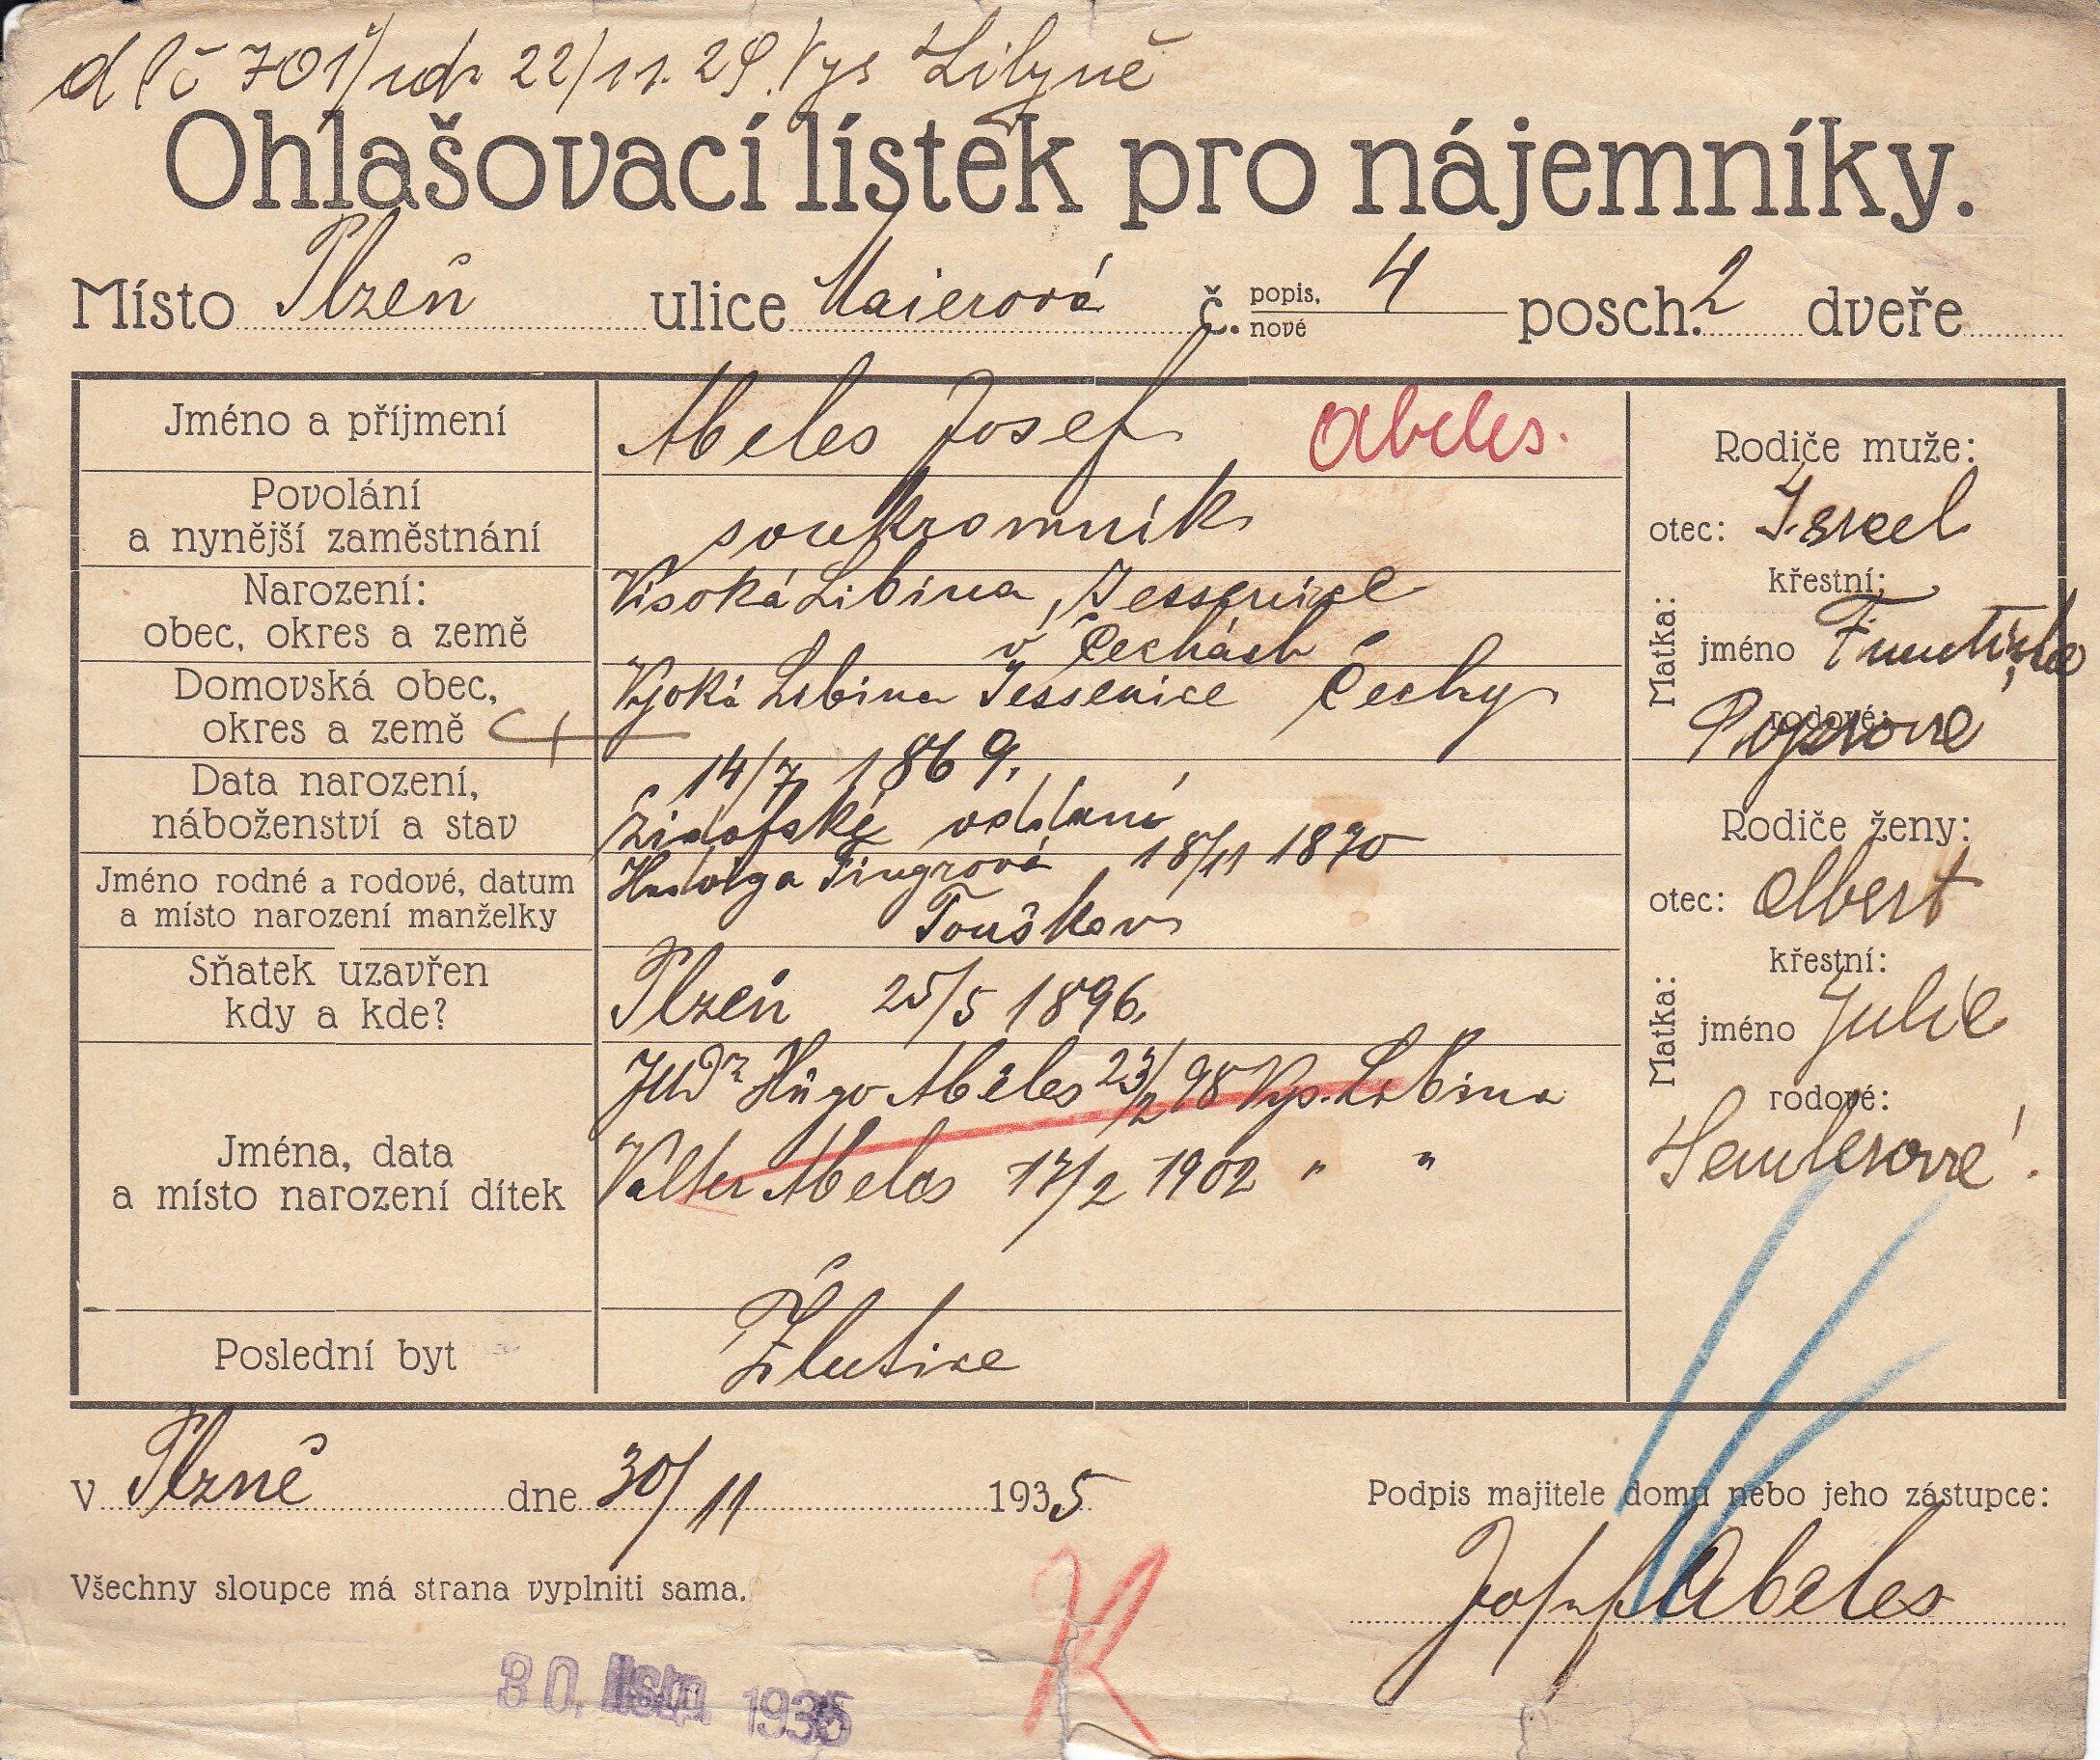 d l č 701/ 22/11. 29. Vys Libyně
Ohlašovací lístek pro nájemníky.
Místo Plzeň ulice Maierová č. popis. nové 4 posch. 2 dveře
Jméno a příjmení Abeles Josef Abeles.
Povolání
a nynější zaměstnání soukromník
Narození:
obec, okres a země
Visoká Libina, Jessenice
v Čechách
Domovská obec,
okres a země
Vysoká Libina Jessenice Čechy
Data narození,
náboženství a stav
14/7 1869.
židofské oddaní
Jméno rodné a rodové, datum
a místo narození manželky
Hedviga 18/11 1870
Touškov
Sňatek uzavřen
kdy a kde?
Plzeň 25/5 1896.
Jména, data
a místo narození dítek
JUDr Hugo Abeles 23/2 98 Vys. Libina
Valter Abeles 17/2 1902 " "
Poslední byt Žlutice
Rodiče muže:
otec: Israel
Matka:
křestní:
jméno
rodové:
Rodiče ženy:
otec: Albert
Matka:
křestní:
jméno Julie
rodové:
v Plzně dne 30/11 1935
Podpis majitele domu nebo jeho zástupce:
Josef Abeles
Všechny sloupce má strana vyplniti sama.
30. listp. 1935
K